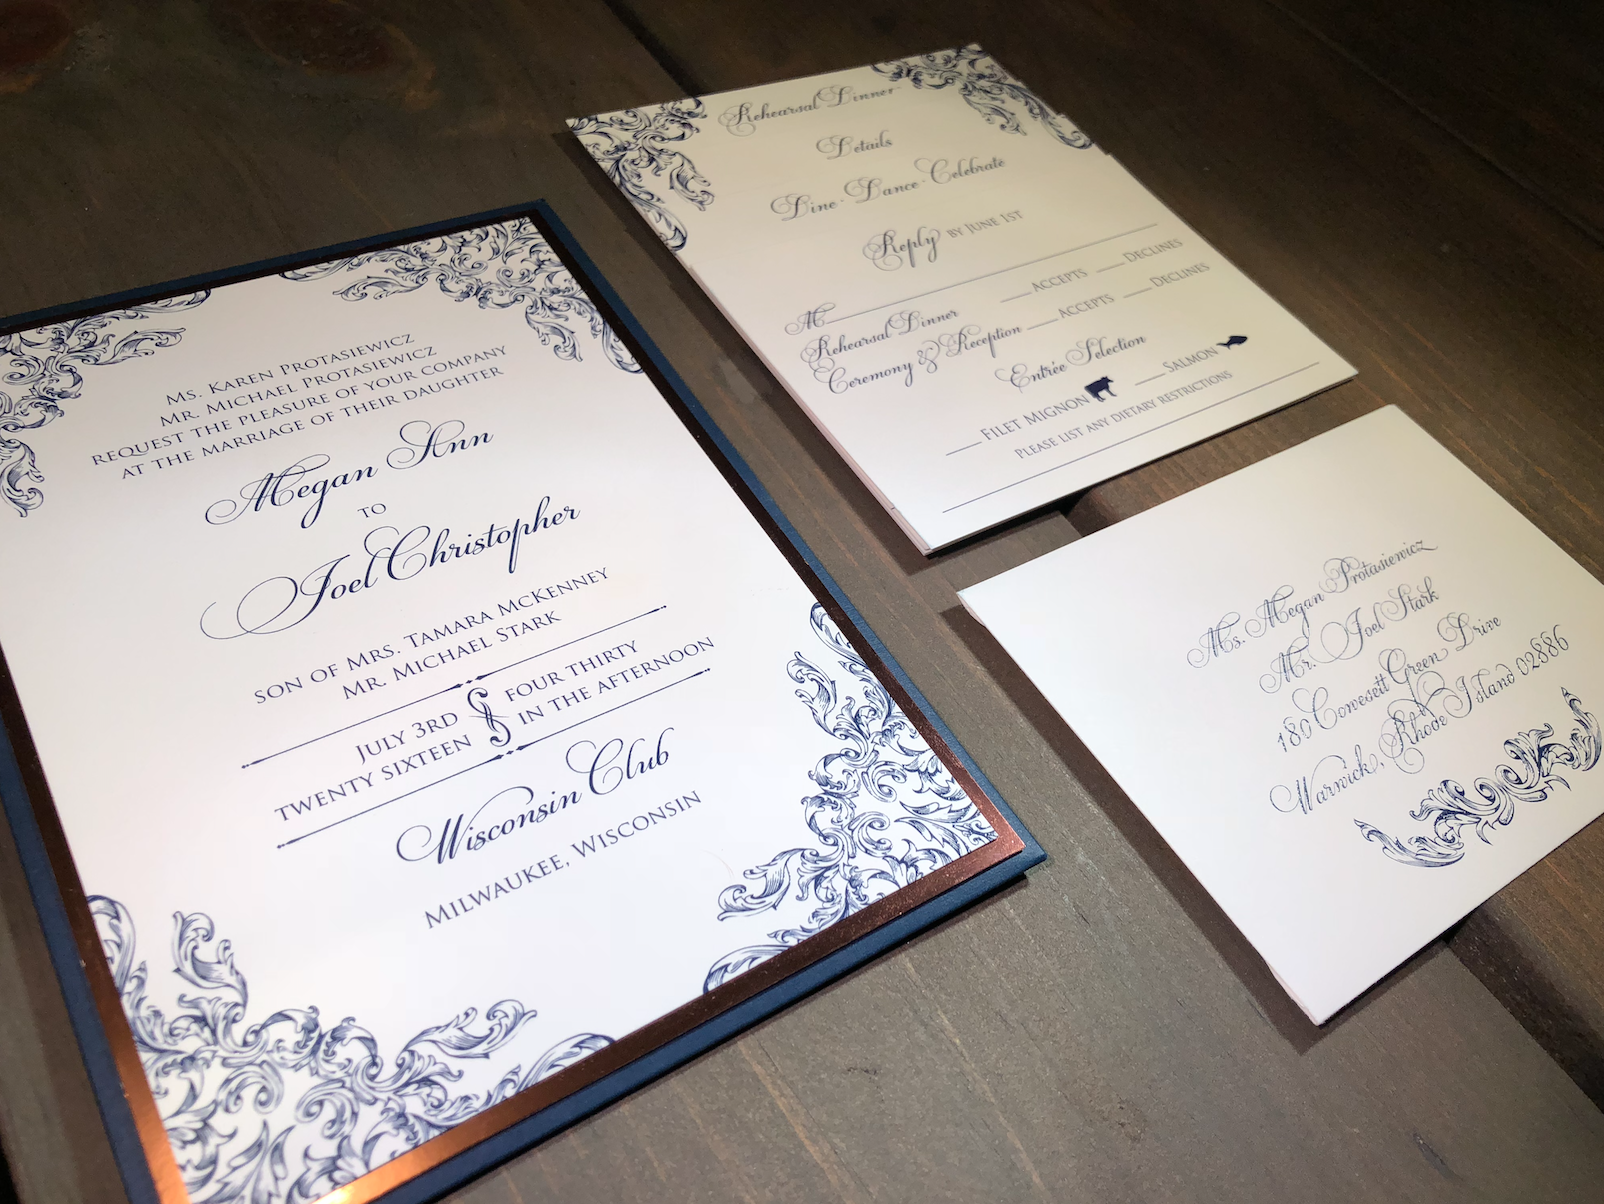 Ms. Karen Protasiewicz
Mr. Michael Protasiewicz
request the pleasure of your company
at the marriage of their daughter
Megan Ann
to
Joel Christopher
son of Mrs. Tamara McKenney
Mr. Michael Stark
July 3rd
twenty sixteen
four thirty
in the afternoon
Wisconsin Club
Milwaukee, Wisconsin
Rehearsal Dinner
Details
Dine · Dance · Celebrate
Reply by June 1st
M
Rehearsal Dinner ___ Accepts ___ Declines
Ceremony & Reception ___ Accepts ___ Declines
Entrée Selection
___ Filet Mignon ___ Salmon
Please list any dietary restrictions
Ms. Megan Protasiewicz
Mr. Joel Stark
180 Cowesett Green Drive
Warwick, Rhode Island 02886